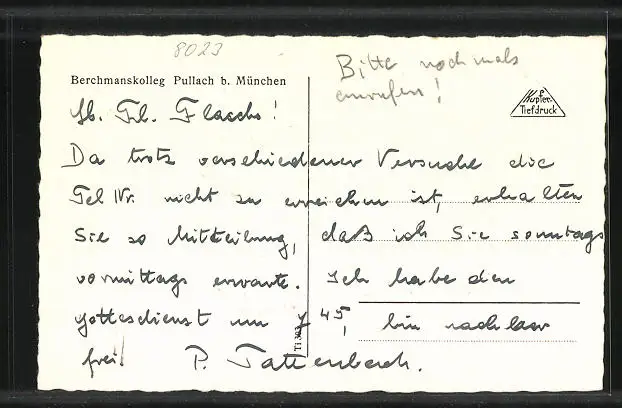 8023
Bitte nochmals
anrufen!
Berchmanskolleg Pullach b. München
Kupfer-
Tiefdruck
Lb. Frl. Flasche!
Da trotz verschiedener Versuche die
Tel Nr. nicht zu erreichen ist, erhalten
Sie so Mitteilung, daß ich Sie sonntags
vormittags erwarte. Ich habe den
Gottesdienst um 7 45, bin nachher
frei! P. Tattenbach.